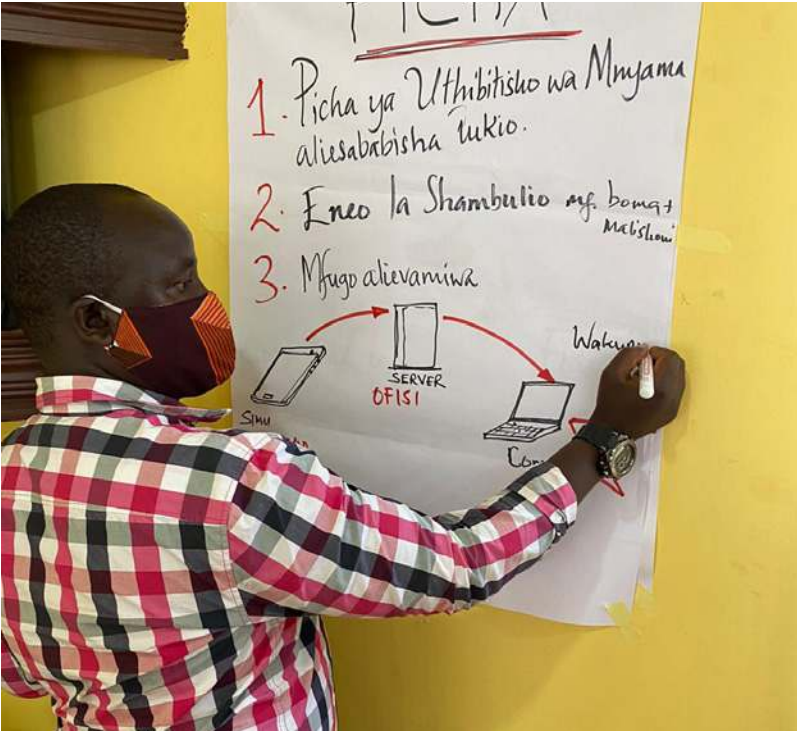 PICHA
1. Picha ya Uthibitisho wa Mnyama
aliesababisha tukio.
2. Eneo la Shambulio mf. boma +
malishoni
3. Mfugo alievamiwa
SERVER
OFISI
SIMU